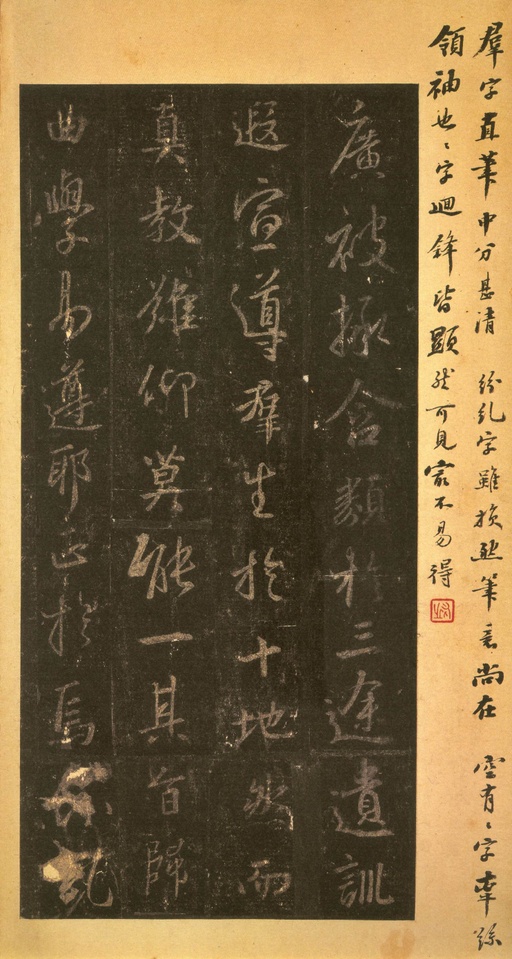 羣字直筆中分甚清 紛糺字雖損筆意尚在 空有〻字牽
領袖也〻字迴鋒皆顯然可見最不易得
廣被拯含類於三途遺訓
遐宣導羣生於十地然而
真教難仰莫能一其旨歸
曲學易遵耶正於焉紛糺